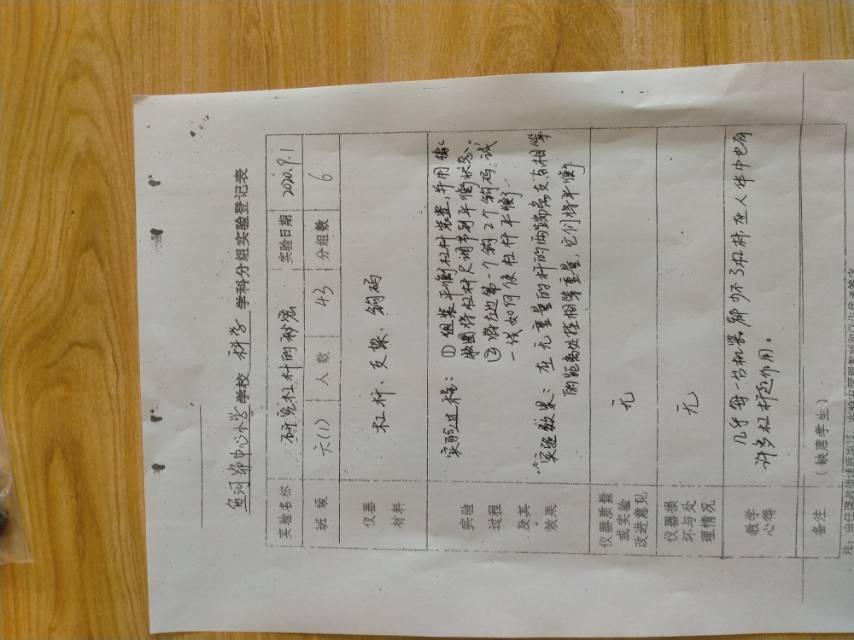 鱼河峁中心小学 学校 科学 学科分组实验登记表
实验名称 研究杠杆的秘密 实验日期 2020.9.1
班级 六(1) 人数 43 分组数 6
仪器
材料
杠杆、支架、钩码
实验
过程
及其
效果
实验过程：① 组装平衡杠杆装置，并用
将杠杆尺调节到平衡状态。
② 将左边第一个钩2个钩码。试
一试如何使杠杆平衡
实验效果：在无重量的杆的两端离支点相等
的距离处挂相等重量，它们将平衡
仪器质量
或实验
改进意见
无
仪器损
坏与处
理情况
无
教学
心得
几乎每一台机器都少不了杠杆，在人体中也有
许多杠杆起作用。
备注 （缺席学生）